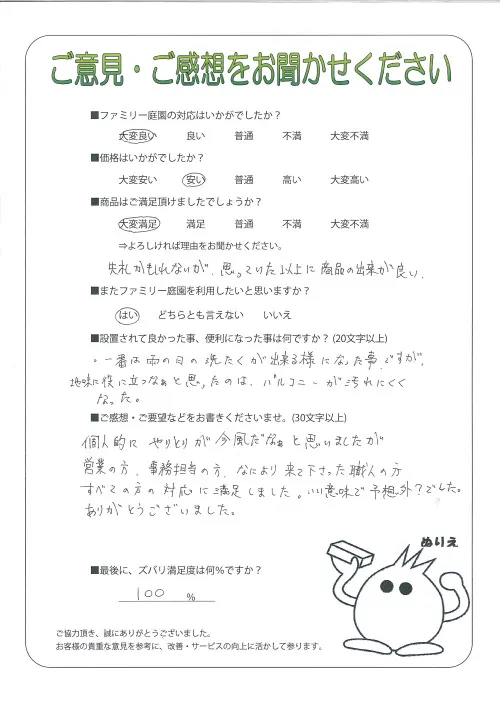 ご意見・ご感想をお聞かせください
■ファミリー庭園の対応はいかがでしたか？
大変良い 良い 普通 不満 大変不満
■価格はいかがでしたか？
大変安い 安い 普通 高い 大変高い
■商品はご満足頂けましたでしょうか？
大変満足 満足 普通 不満 大変不満
⇒よろしければ理由をお聞かせください。
失礼かもしれないが、思っていた以上に商品の出来が良い。
■またファミリー庭園を利用したいと思いますか？
はい どちらとも言えない いいえ
■設置されて良かった事、便利になった事は何ですか？(20文字以上)
・一番は雨の日の洗たくが出来る様になった事ですが、
地味に役に立つなぁと思ったのは、バルコニーが汚れにくく
なった。
■ご感想・ご要望などをお書きくださいませ。(30文字以上)
個人的に やりとりが今風だなぁと思いましたが
営業の方、事務担当の方、なにより来て下さった職人の方
すべての方の対応に満足しました。いい意味で予想外？でした。
ありがとうございました。
ぬりえ
■最後に、ズバリ満足度は何％ですか？
100 ％
ご協力頂き、誠にありがとうございました。
お客様の貴重な意見を参考に、改善・サービスの向上に活かして参ります。